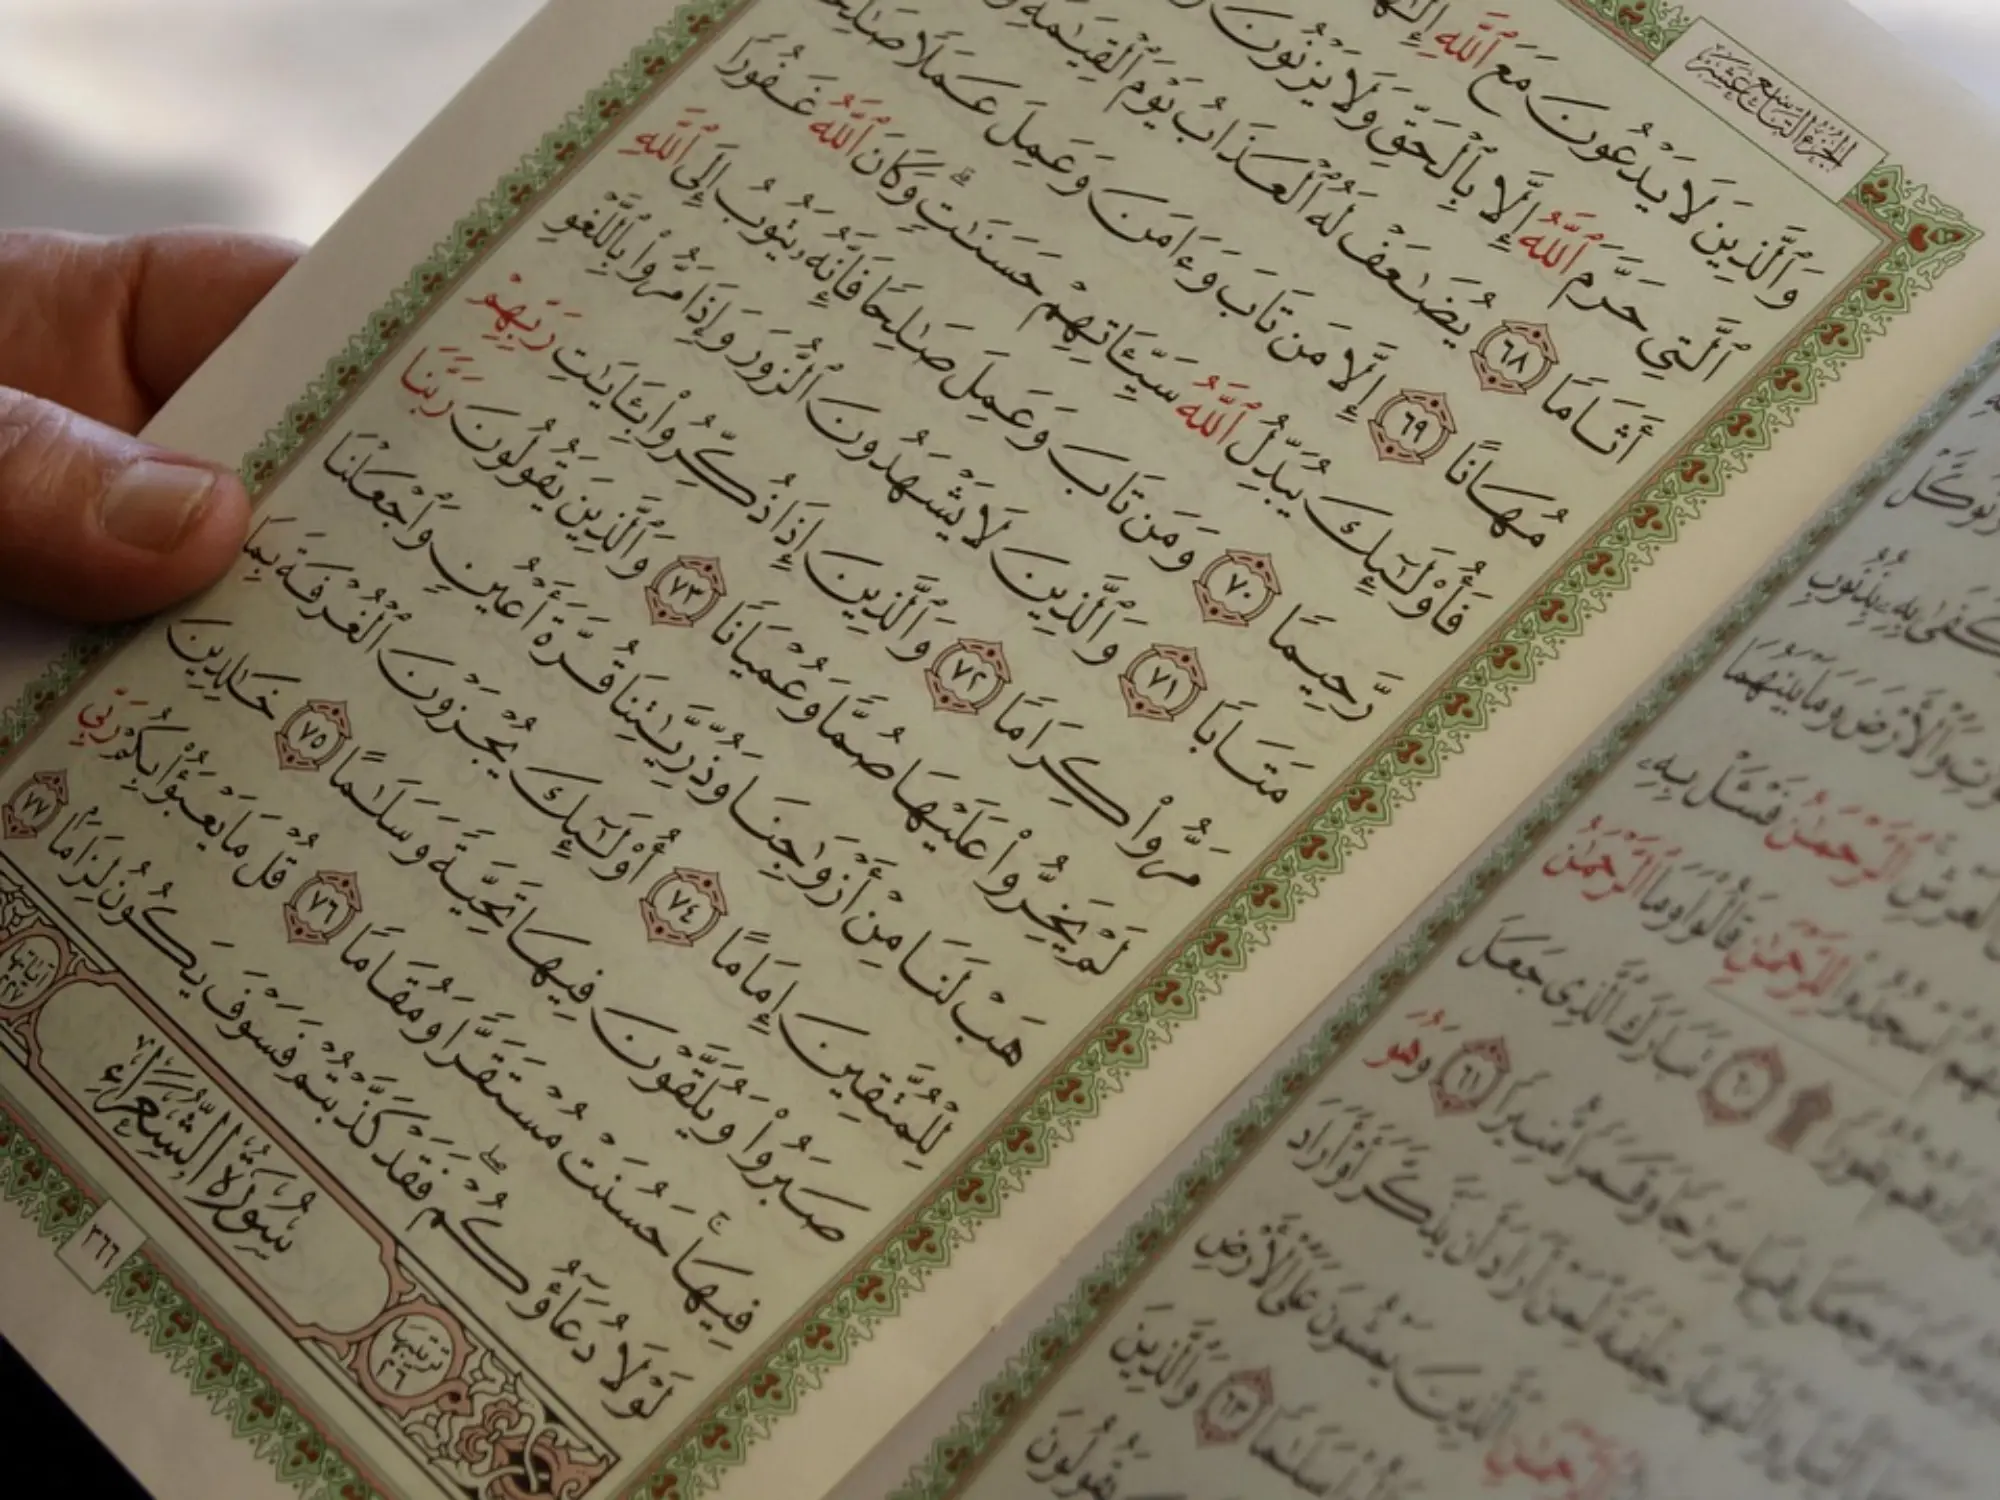 وَتَوَكَّلْ
وَكَفَىٰ بِهِۦ بِذُنُوبِ
وَٱلْأَرْضَ وَمَا بَيْنَهُمَا
ٱلْعَرْشِ ٱلرَّحْمَٰنُ فَسْـَٔلْ بِهِۦ
ٱسْجُدُوا۟ لِلرَّحْمَٰنِ قَالُوا۟ وَمَا ٱلرَّحْمَٰنُ
نُفُورًا ۩ ٦٠ تَبَارَكَ ٱلَّذِى جَعَلَ
وَجَعَلَ فِيهَا سِرَٰجًا وَقَمَرًا مُّنِيرًا ٦١ وَهُوَ
خِلْفَةً لِّمَنْ أَرَادَ أَن يَذَّكَّرَ أَوْ أَرَادَ
ٱلرَّحْمَٰنِ ٱلَّذِينَ يَمْشُونَ عَلَى ٱلْأَرْضِ
سَلَٰمًا ٦٣ وَٱلَّذِينَ
يَقُولُونَ
الجزء التاسع عشر
وَٱلَّذِينَ لَا يَدْعُونَ مَعَ ٱللَّهِ
ٱلَّتِى حَرَّمَ ٱللَّهُ إِلَّا بِٱلْحَقِّ وَلَا يَزْنُونَ
أَثَامًا ٦٨ يُضَٰعَفْ لَهُ ٱلْعَذَابُ يَوْمَ ٱلْقِيَٰمَةِ
مُهَانًا ٦٩ إِلَّا مَن تَابَ وَءَامَنَ وَعَمِلَ عَمَلًا صَٰلِحًا
فَأُو۟لَٰٓئِكَ يُبَدِّلُ ٱللَّهُ سَيِّـَٔاتِهِمْ حَسَنَٰتٍ ۗ وَكَانَ ٱللَّهُ غَفُورًا
رَّحِيمًا ٧٠ وَمَن تَابَ وَعَمِلَ صَٰلِحًا فَإِنَّهُۥ يَتُوبُ إِلَى ٱللَّهِ
مَتَابًا ٧١ وَٱلَّذِينَ لَا يَشْهَدُونَ ٱلزُّورَ وَإِذَا مَرُّوا۟ بِٱللَّغْوِ
مَرُّوا۟ كِرَامًا ٧٢ وَٱلَّذِينَ إِذَا ذُكِّرُوا۟ بِـَٔايَٰتِ رَبِّهِمْ
لَمْ يَخِرُّوا۟ عَلَيْهَا صُمًّا وَعُمْيَانًا ٧٣ وَٱلَّذِينَ يَقُولُونَ رَبَّنَا
هَبْ لَنَا مِنْ أَزْوَٰجِنَا وَذُرِّيَّٰتِنَا قُرَّةَ أَعْيُنٍ وَٱجْعَلْنَا
لِلْمُتَّقِينَ إِمَامًا ٧٤ أُو۟لَٰٓئِكَ يُجْزَوْنَ ٱلْغُرْفَةَ بِمَا
صَبَرُوا۟ وَيُلَقَّوْنَ فِيهَا تَحِيَّةً وَسَلَٰمًا ٧٥ خَٰلِدِينَ
فِيهَا ۚ حَسُنَتْ مُسْتَقَرًّا وَمُقَامًا ٧٦ قُلْ مَا يَعْبَؤُا۟ بِكُمْ رَبِّى
لَوْلَا دُعَآؤُكُمْ ۖ فَقَدْ كَذَّبْتُمْ فَسَوْفَ يَكُونُ لِزَامًۢا ٧٧
ترتيبها ٢٦ سُورَةُ الشُّعَرَاءِ آياتها ٢٢٧
٣٦٦